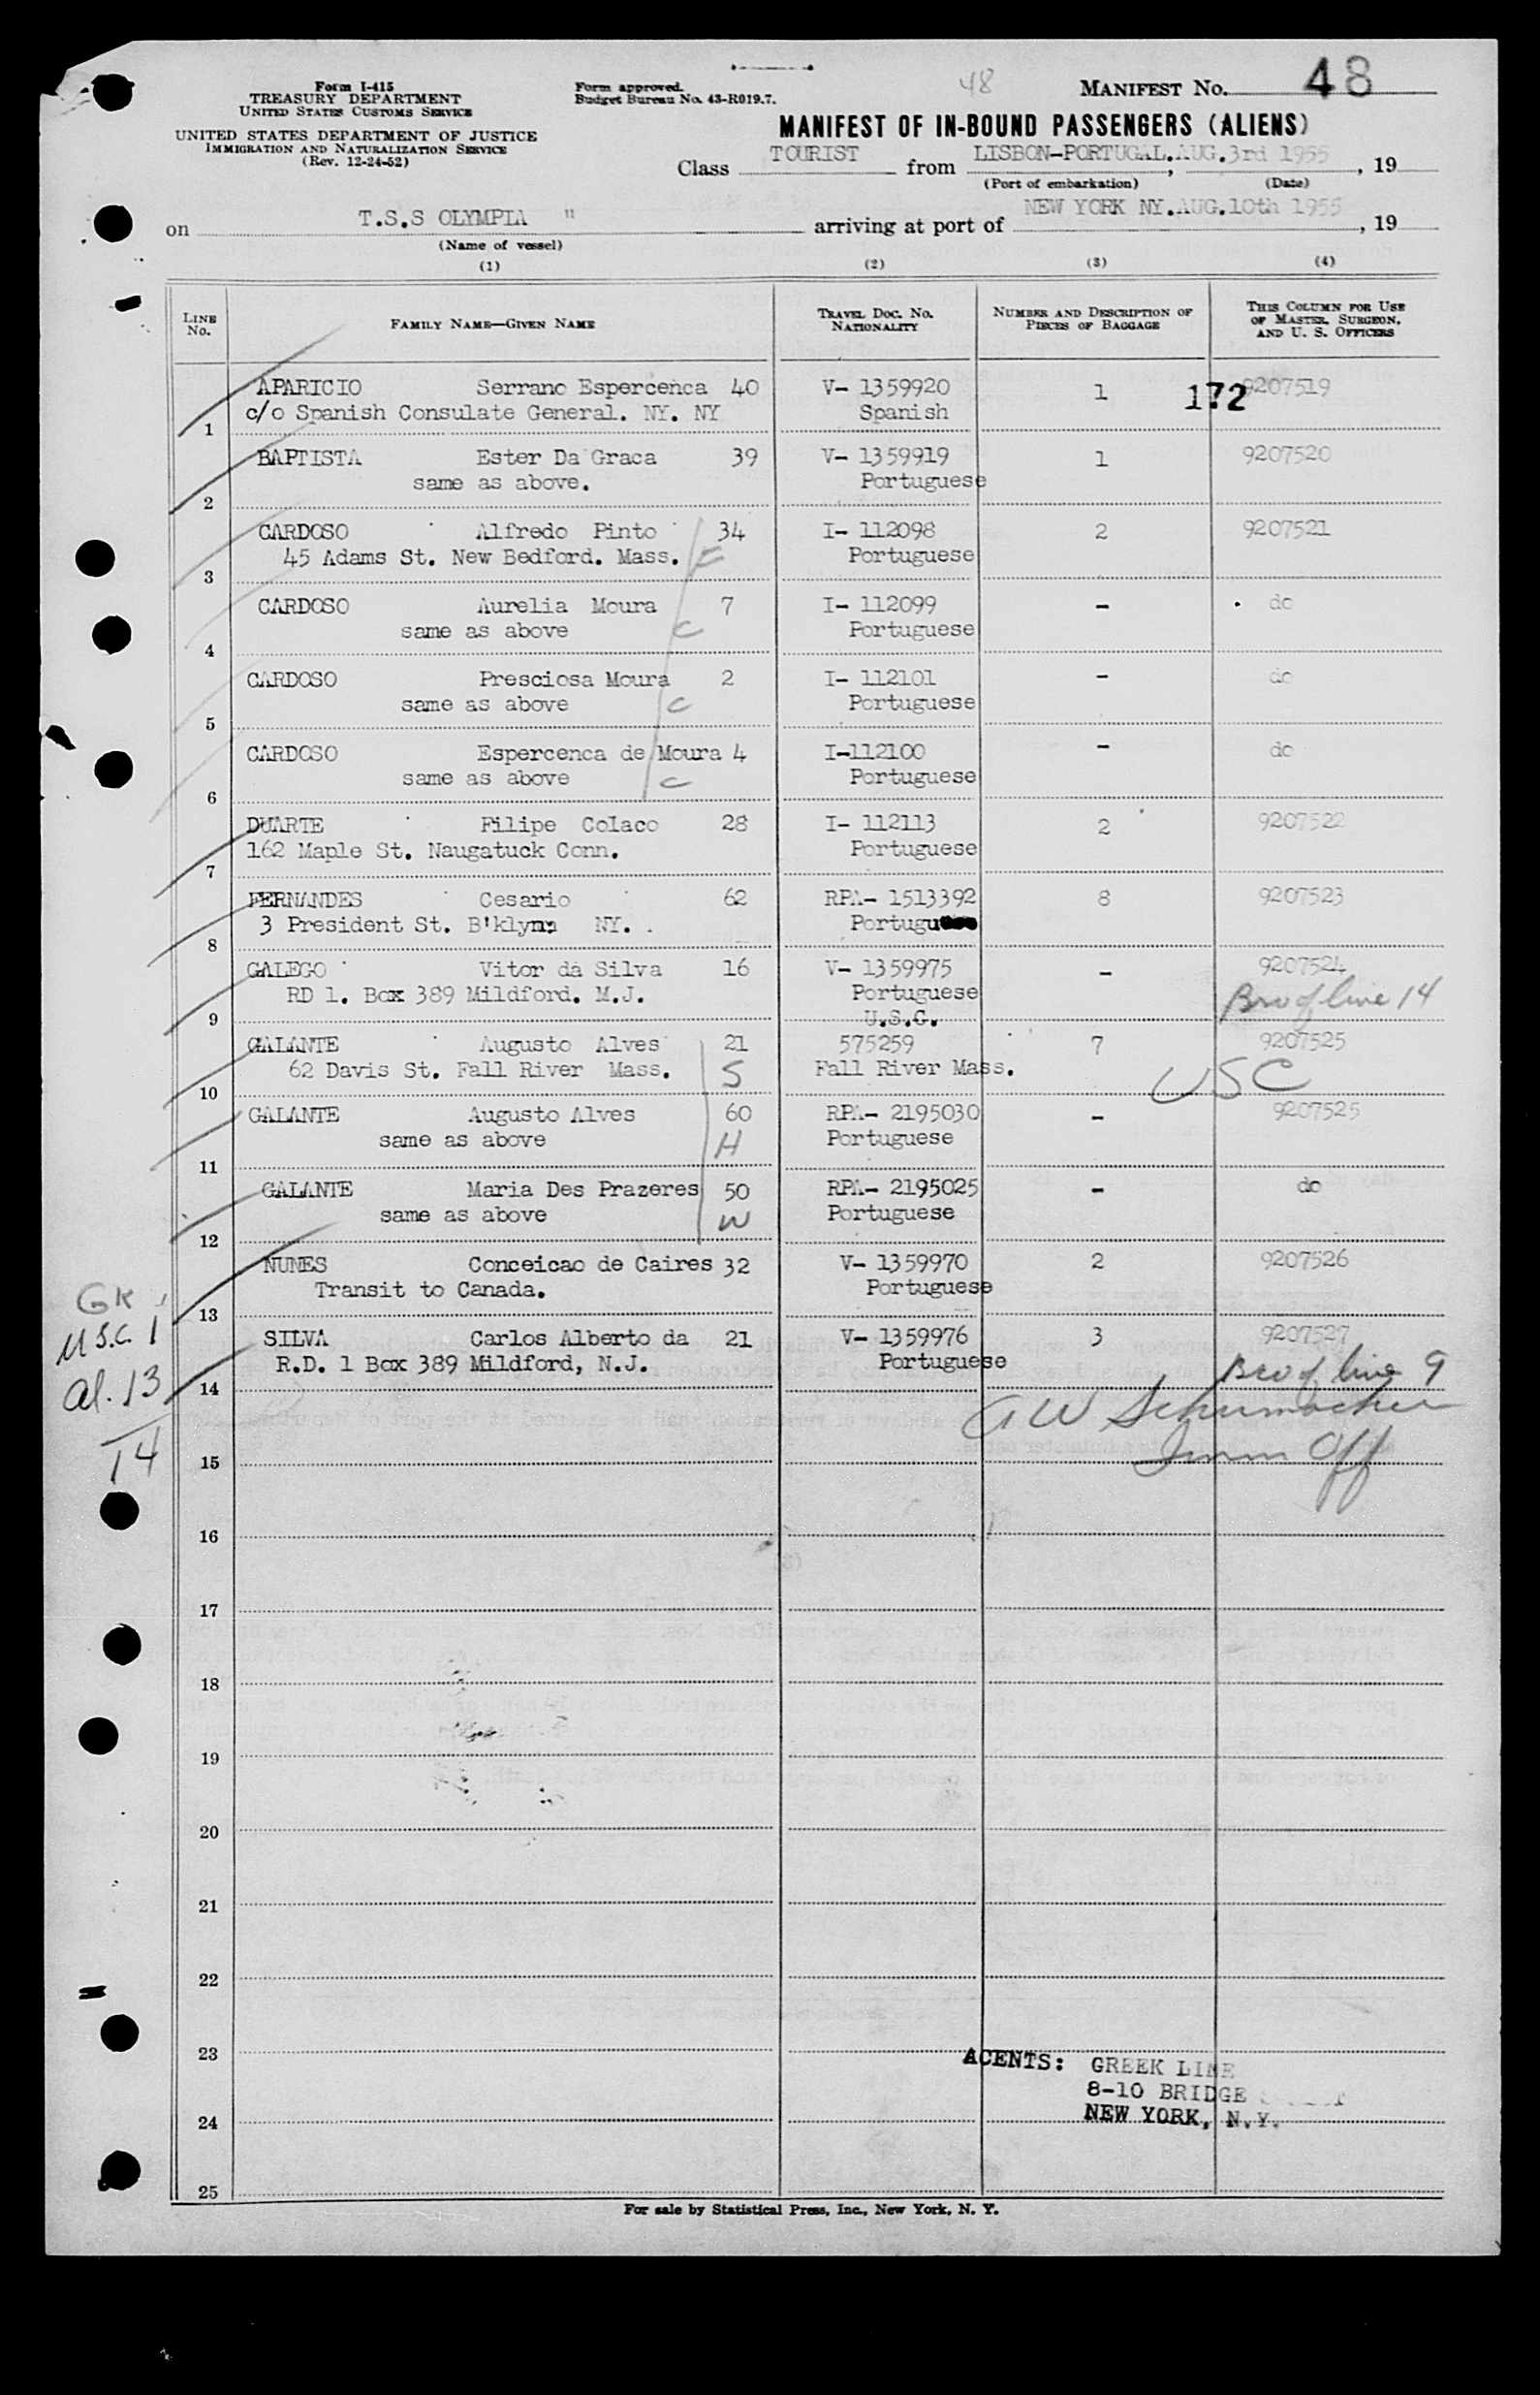 Form I-415
TREASURY DEPARTMENT
UNITED STATES CUSTOMS SERVICE
UNITED STATES DEPARTMENT OF JUSTICE
IMMIGRATION AND NATURALIZATION SERVICE
(Rev. 12-24-52)
Form approved.
Budget Bureau No. 43-R019.7.
48
MANIFEST No. 48
MANIFEST OF IN-BOUND PASSENGERS (ALIENS)
Class TOURIST from LISBON-PORTUGAL, AUG.3rd 1955, 19
(Port of embarkation) (Date)
on T.S.S OLYMPIA " arriving at port of NEW YORK NY.AUG.10th 1955, 19
(Name of vessel)
(1) (2) (3) (4)
LINE No. FAMILY NAME—GIVEN NAME TRAVEL DOC. NO. NATIONALITY NUMBER AND DESCRIPTION OF PIECES OF BAGGAGE THIS COLUMN FOR USE OF MASTER, SURGEON, AND U. S. OFFICERS
APARICIO Serrano Espercenca 40 V- 1359920 1 172 9207519
1 c/o Spanish Consulate General. NY. NY Spanish
BAPTISTA Ester Da Graca 39 V- 1359919 1 9207520
2 same as above. Portuguese
CARDOSO Alfredo Pinto 34 I- 112098 2 9207521
3 45 Adams St. New Bedford. Mass. F Portuguese
CARDOSO Aurelia Moura 7 I- 112099 - do
4 same as above C Portuguese
CARDOSO Presciosa Moura 2 I- 112101 - do
5 same as above C Portuguese
CARDOSO Espercenca de Moura 4 I-112100 - do
6 same as above C Portuguese
DUARTE Filipe Colaco 28 I- 112113 2 9207522
7 162 Maple St. Naugatuck Conn. Portuguese
FERNANDES Cesario 62 RPA- 1513392 8 9207523
8 3 President St. B'klynn NY. . Portugu
GALEGO Vitor da Silva 16 V- 1359975 - 9207524
9 RD 1. Box 389 Mildford. M.J. Portuguese Bro of line 14
U.S.C.
GALANTE Augusto Alves 21 575259 7 9207525
10 62 Davis St. Fall River Mass. S Fall River Mass. USC
GALANTE Augusto Alves 60 RPA- 2195030 - 9207525
11 same as above H Portuguese
GALANTE Maria Des Prazeres 50 RPA- 2195025 - do
12 same as above W Portuguese
NUNES Conceicao de Caires 32 V- 1359970 2 9207526
13 Transit to Canada. Portuguese
SILVA Carlos Alberto da 21 V- 1359976 3 9207527
14 R.D. 1 Box 389 Mildford, N.J. Portuguese Bro of line 9
GK 1
U.S.C. 1
al. 13
14
G W Schumacher
15 Imm Off
16
17
18
19
20
21
22
23
AGENTS: GREEK LINE
8-10 BRIDGE
24 NEW YORK, N.Y.
25
For sale by Statistical Press, Inc., New York, N. Y.